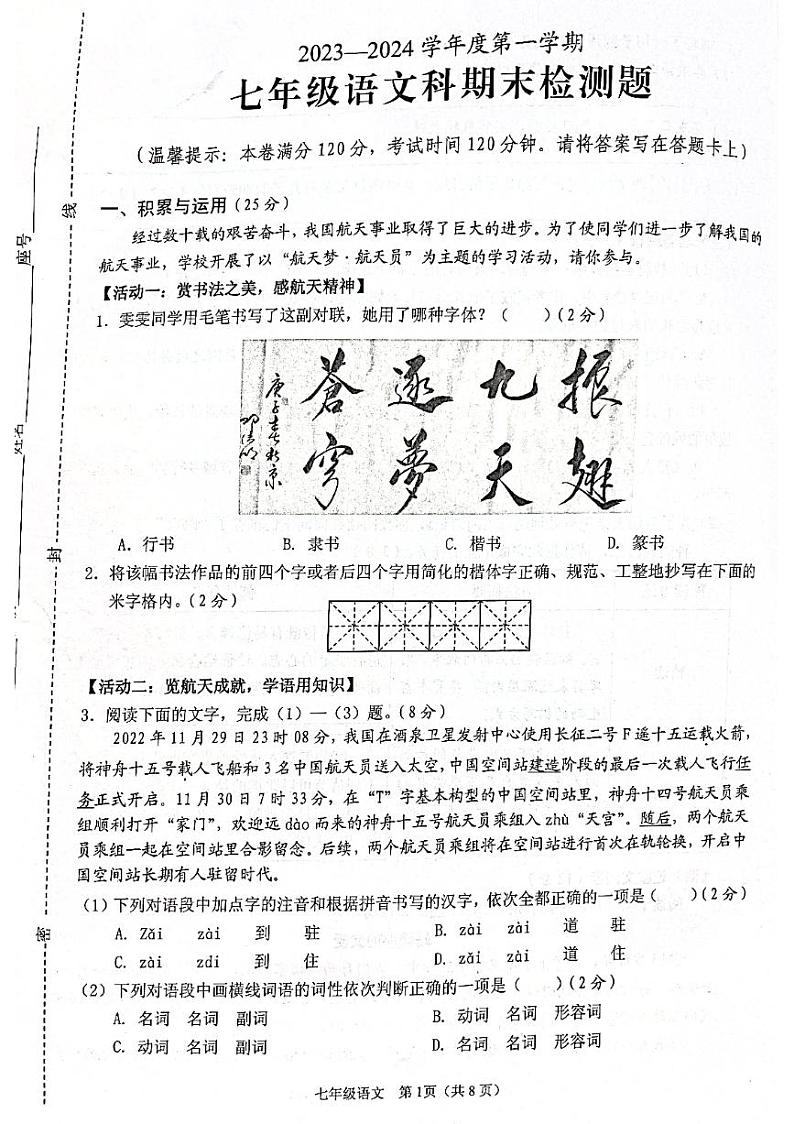 2023—2024学年度第一学期
七年级语文科期末检测题
（温馨提示：本卷满分120分，考试时间120分钟。请将答案写在答题卡上）
一、积累与运用（25分）
经过数十载的艰苦奋斗，我国航天事业取得了巨大的进步。为了使同学们进一步了解我国的
航天事业，学校开展了以“航天梦·航天员”为主题的学习活动，请你参与。
【活动一：赏书法之美，感航天精神】
1．雯雯同学用毛笔书写了这副对联，她用了哪种字体？（　　）（2分）
振翅
九天
逐夢
蒼穹
A．行书　B．隶书　C．楷书　D．篆书
2．将该幅书法作品的前四个字或者后四个字用简化的楷体字正确、规范、工整地抄写在下面的
米字格内。（2分）
【活动二：览航天成就，学语用知识】
3．阅读下面的文字，完成（1）—（3）题。（8分）
2022年11月29日23时08分，我国在酒泉卫星发射中心使用长征二号F遥十五运载火箭，
将神舟十五号载人飞船和3名中国航天员送入太空，中国空间站建造阶段的最后一次载人飞行任
务正式开启。11月30日7时33分，在“T”字基本构型的中国空间站里，神舟十四号航天员乘
组顺利打开“家门”，欢迎远dào而来的神舟十五号航天员乘组入zhù“天宫”。随后，两个航天
员乘组一起在空间站里合影留念。后续，两个航天员乘组将在空间站进行首次在轨轮换，开启中
国空间站长期有人驻留时代。
（1）下列对语段中加点字的注音和根据拼音书写的汉字，依次全都正确的一项是（　　）（2分）
A．Zǎi　zài　到　驻　B．zài　zài　道　驻
C．zài　zdi　到　住　D．zǎi　zài　道　住
（2）下列对语段中画横线词语的词性依次判断正确的一项是（　　）（2分）
A．名词　名词　副词　B．动词　名词　形容词
C．动词　名词　副词　D．名词　名词　形容词
七年级语文　第1页（共8页）
座号
姓名
线
封
密